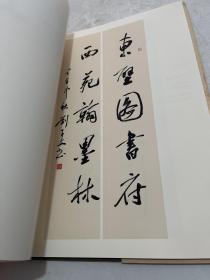 東壁图書府
西苑翰墨林